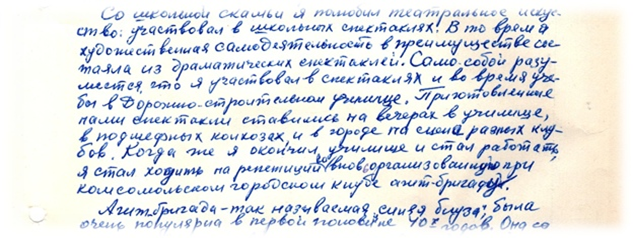 Со школьной скамьи я полюбил театральное искус-
ство: участвовал в школьных спектаклях. В то время
художественная самодеятельность в преимуществе со-
таяла из драматических спектаклей. Само собой разу-
меется, что я участвовал в спектаклях и во время уче-
бы в Дорожно-строительном училище. Приготовленные
нами спектакли ставились на вечерах в училище,
в подшефных колхозах и в городе на сцене разных клу-
бов. Когда же я окончил училище и стал работать,
я стал ходить на репетиции во вновь организованную при
комсомольском городском клубе агит-бригаду.
Агит-бригада - так называемая синяя блуза, была
очень популярна в первой половине годов. Она со